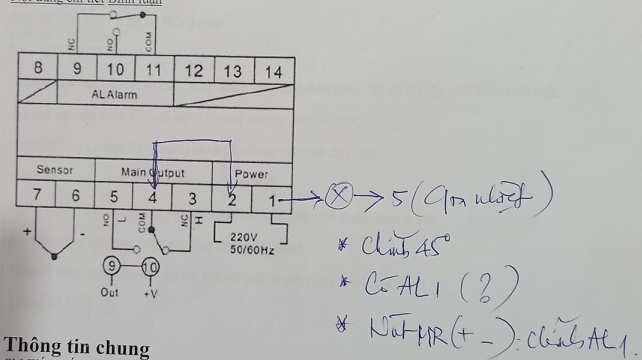 Nội dung chi tiết Bình luận
NC NO COM
8 9 10 11 12 13 14
AL Alarm
Sensor Main Output Power
7 6 5 4 3 2 1 → ⊗ → 5 (Gia nhiệt)
+ - NO L COM NC H 220V
50/60Hz
* Chỉnh 45°
9 10 * Có AL1 (?)
Out +V
* Nút MR (+ -): chỉnh AL1
Thông tin chung